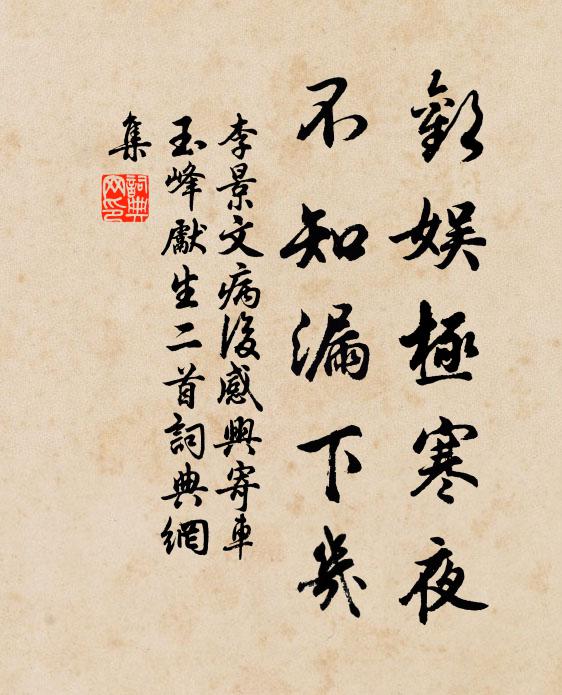 歡娛極寒夜
不知漏下幾
李景文病後感興寄車
玉峰獻生二首詞典網
集
詞典
网印